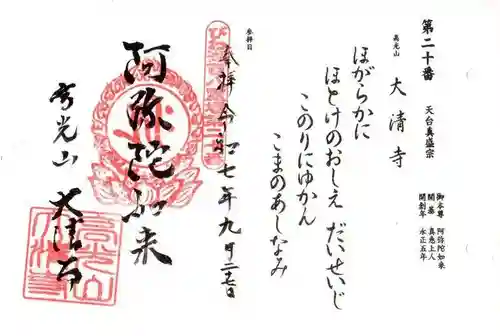 第二十番
天台真盛宗
御本尊 阿弥陀如来
開基 真恵上人
開創年 永正五年
高光山
大清寺
ほがらかに
ほとけのおしえ だいせいじ
このりにゆかん
こまのあしなみ
参拝日
奉拝 令和七年九月二七日
阿弥陀如来
高光山
大清寺